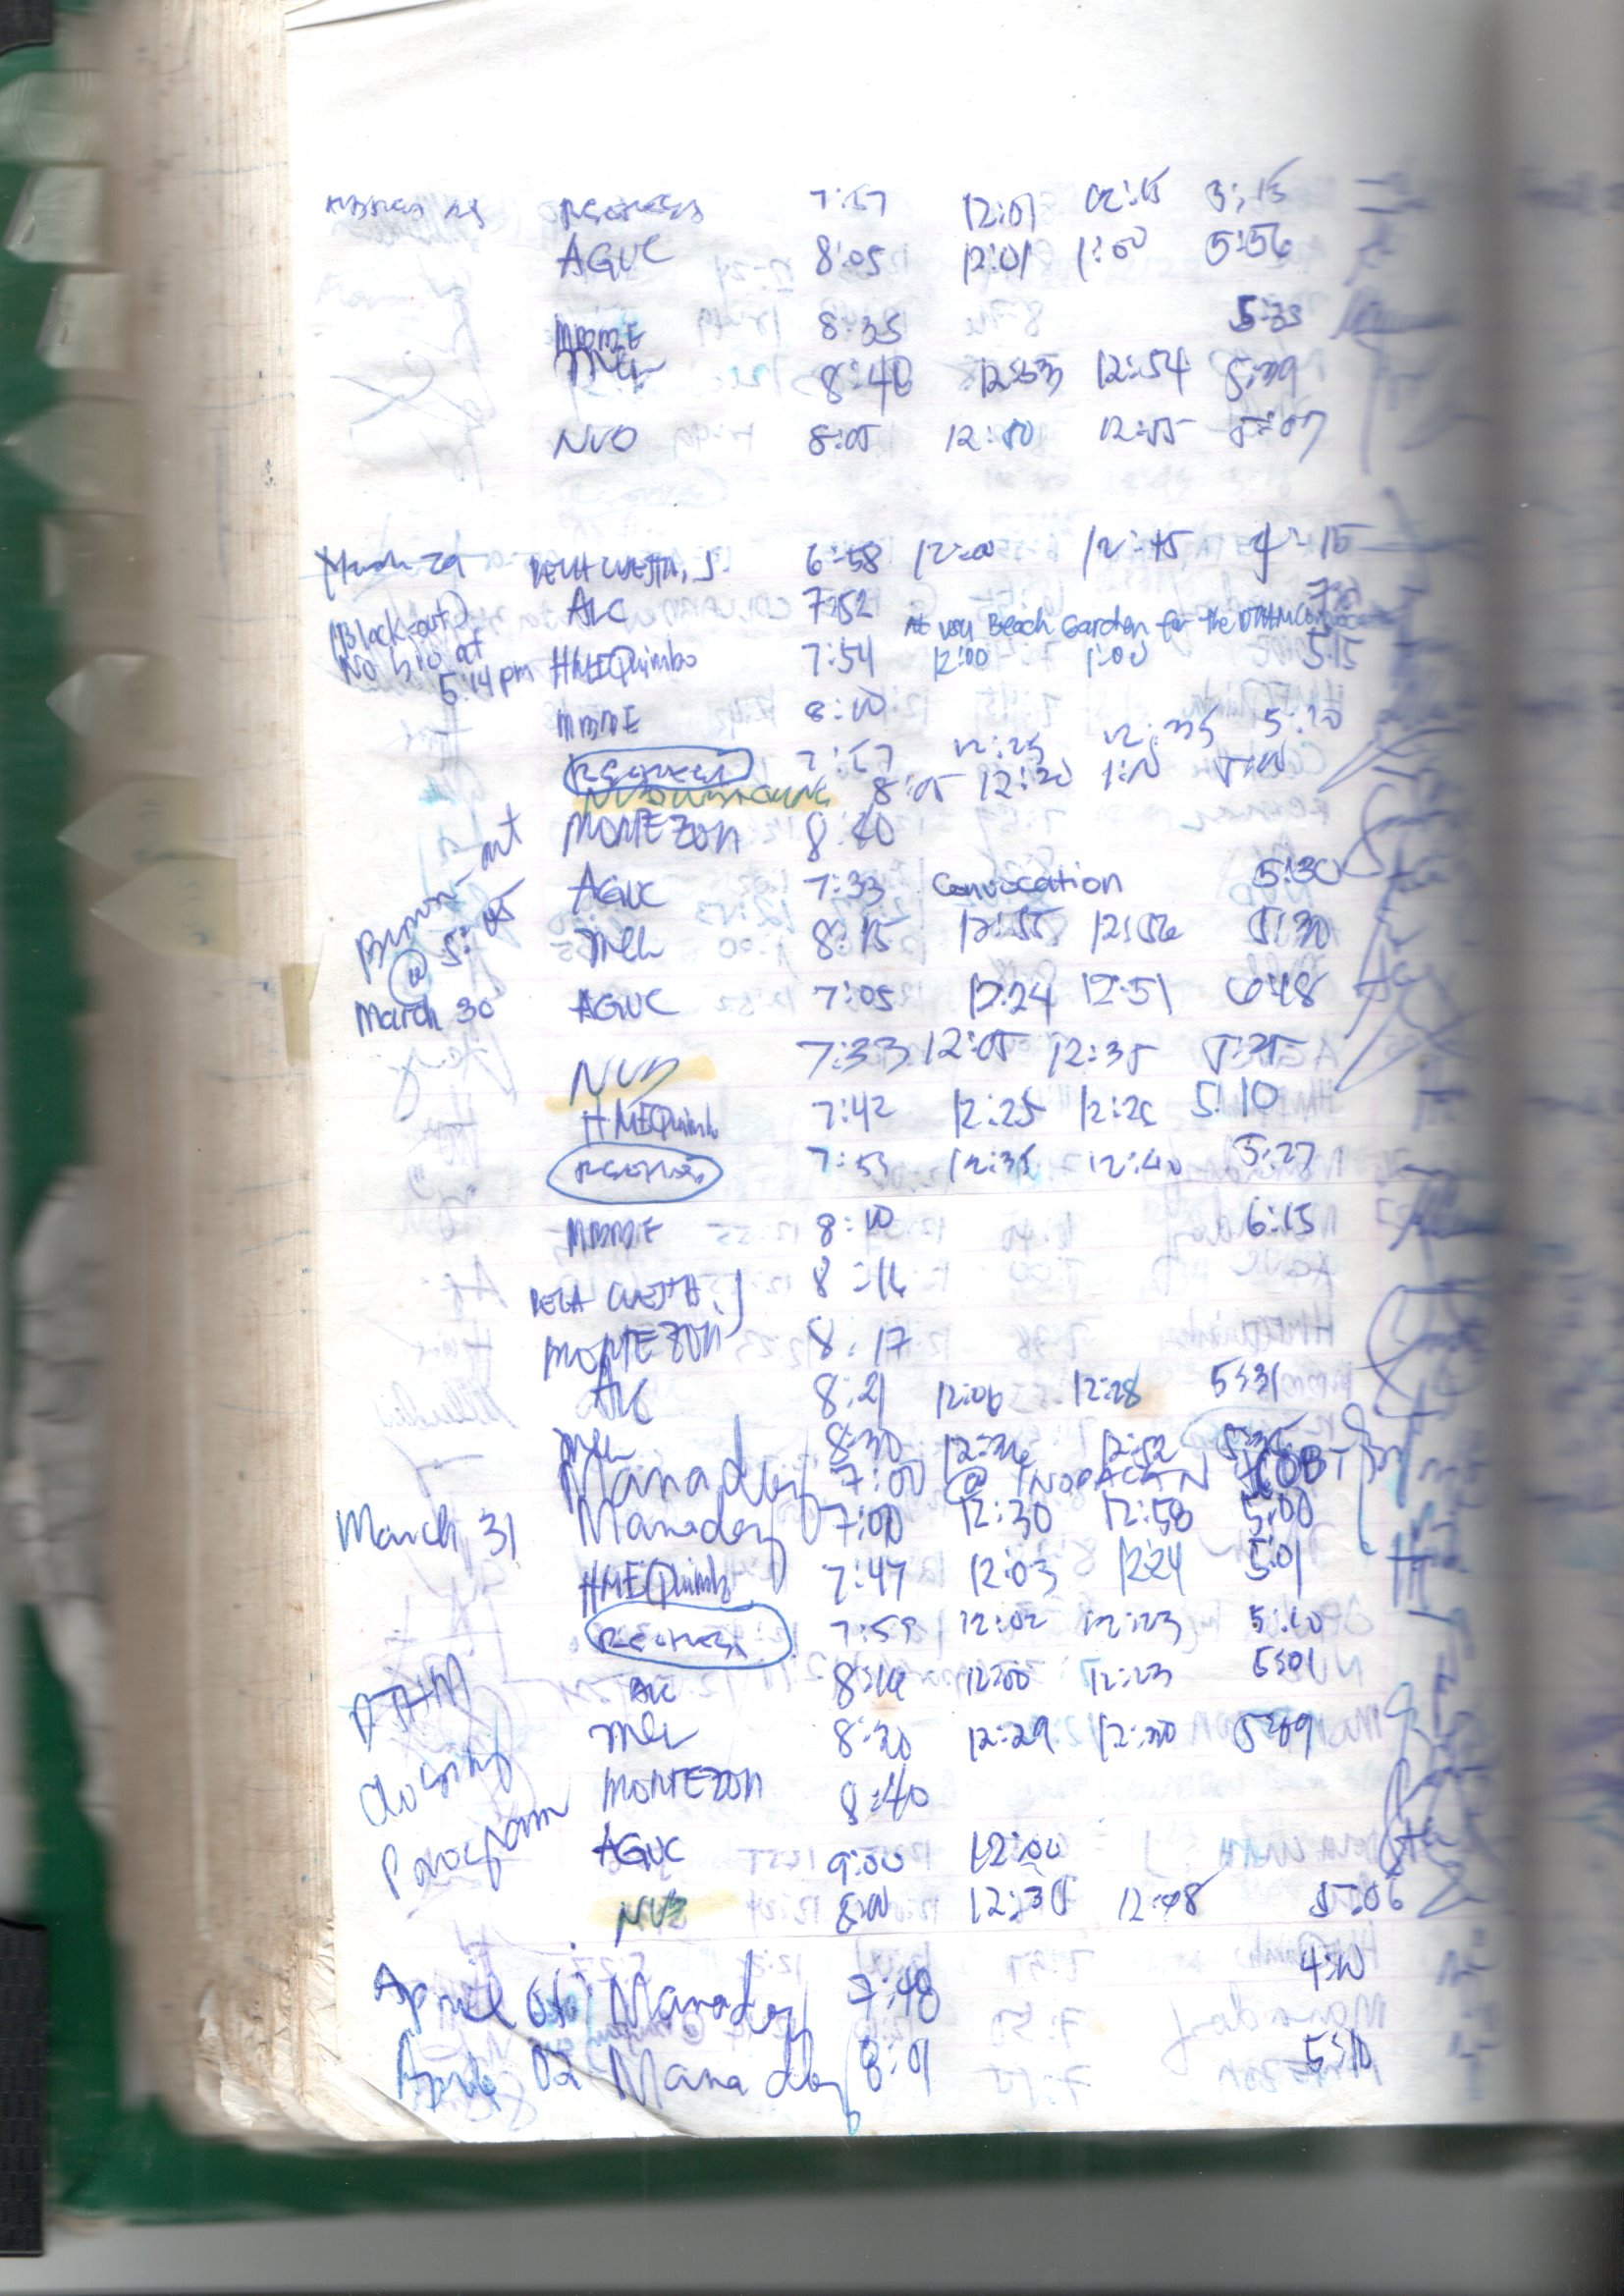 7:57 12:01 12:15 3:15
AGUC 8:05 12:01 1:00 5:56
MBME 8:35 5:33
Mel 8:40 12:53 12:54 5:39
NVO 8:05 12:10 12:55 5:07
March 29 DELA CUESTA, J 6:58 12:00 12:45 4:15
(Block-out) ALC 7:52 At VSU Beach Garden for the DTHM Convocation
No bio at 5:14 pm HMEQuimbo 7:54 12:00 1:00 5:15
MBME 8:10
7:57 12:25 12:35 5:20
8:05 12:20 1:10
MONTEZON 8:40
AGUC 7:33 Convocation 5:30
Brown-out @ 5:05 Mel 8:15 12:55 12:56 5:30
March 30 AGUC 7:05 12:24 12:51 6:48
NVO 7:33 12:05 12:35 5:35
HMEQuimbo 7:42 12:25 12:26 5:10
7:53 12:35 12:40 5:27
MBME 8:10 6:15
DELA CUESTA, J 8:16
MONTEZON 8:17
ALC 8:21 12:06 12:28 5:31
Mel 8:30 12:36 12:52
Manadoy 7:00 @ INOPACAN
March 31 Manadoy 7:00 12:30 12:58 5:00
HMEQuimbo 7:47 12:03 12:24 5:01
7:59 12:02 12:23 5:10
DTHM ALC 12:00 12:23 5:01
closing Mel 8:20 12:29 12:30 5:09
Program MONTEZON 8:40
AGUC 9:00 12:00
NVO 8:00 12:30 12:48 5:06
April 01 Manadoy 7:48 4:30
April 02 Manadoy 8:01 5:10